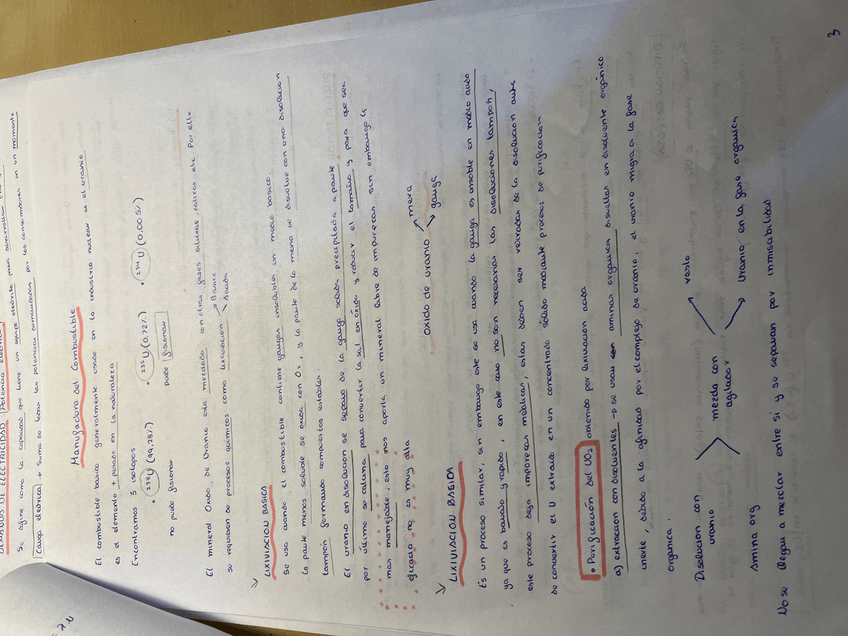 DEMANDAS DE ELECTRICIDAD Potencia eléctrica
Se define como la capacidad que tiene un equipo eléctrico para
Carga eléctrica → suma de todas las potencias consumidas por los consumidores en un momento
Manufactura del Combustible
El combustible básico generalmente usado en la industria nuclear es el uranio
es el elemento + pesado en la naturaleza
Encontramos 3 isótopos
• 238U (99,28%) • 235U (0.72%) • 234U (0.005%)
no puede fisionar puede fisionar
El mineral Óxido de Uranio esta mezclado con otras fases silíceas, cálcicas etc. Por ello
se requieren de procesos químicos como lixiviación Básica
Ácida
LIXIVIACION BASICA
Se usa cuando el combustible contiene gangas insolubles en medio básico
la parte menos soluble se oxida con O2, y la parte de la mena se disuelve con una disolución
tampón formando compuestos estables
El uranio en disolución se separa de la ganga sólida precipitada a parte.
por último se calcina para convertir la sal en óxido y reducir el tamaño y para que sea
mas manejable, esto nos aporta un mineral libre de impurezas sin embargo la
eficacia no es muy alta
oxido de uranio mena
ganga
LIXIVIACION BASICA
Es un proceso similar, sin embargo este se usa cuando la ganga es insoluble en medio acido
ya que es barato y rapido, en este caso no son necesarias las disoluciones tampon,
este proceso deja impurezas metálicas, estas deben ser retiradas de la disolucion antes
de convertir el U extraido en un concentrado sólido mediante proceso de purificación
• Purificación del UO2 obtenido por lixiviación acida
a) extracción con disolventes → se usan aminas orgánicas disueltas en disolvente orgánico
inerte, debido a la afinidad por el complejo de uranio, el uranio migra a la fase
organica.
Disolución con
uranio
mezcla con
agitador
resto
Amina org
Uranio en la fase organica
No se llegan a mezclar entre sí y se separan por inmiscibilidad
3